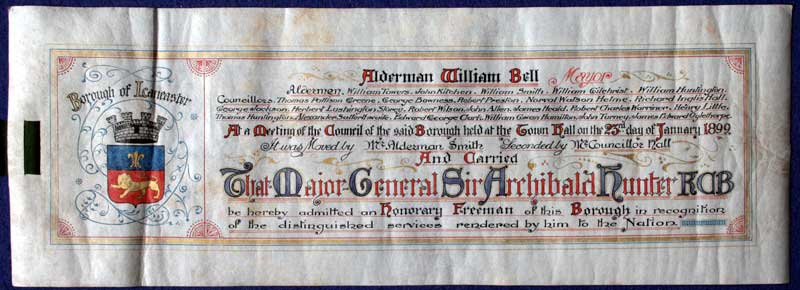 Borough of Lancaster
Alderman William Bell Mayor
Aldermen, William Towers, John Kitchen, William Smith, William Gilchrist, William Huntington,
Councillors, Thomas Pattison Greene, George Bowness, Robert Preston, Norval Watson Helme, Richard Inglis Hall,
George Jackson, Herbert Lushington Storey, Robert Wilson, John Allen, James Heald, Robert Charles Warriner, Henry Little,
Thomas Huntington, Alexander Satterthwaite, Edward George Clark, William Gowan Hamilton, John Turney, James Edward Oglethorpe,
At a Meeting of the Council of the said Borough held at the Town Hall on the 25th day of January 1899
It was Moved by Mr. Alderman Smith Seconded by Mr. Councillor Hall
And Carried
That Major-General Sir Archibald Hunter KCB
be hereby admitted an Honorary Freeman of this Borough in recognition
of the distinguished services rendered by him to the Nation.